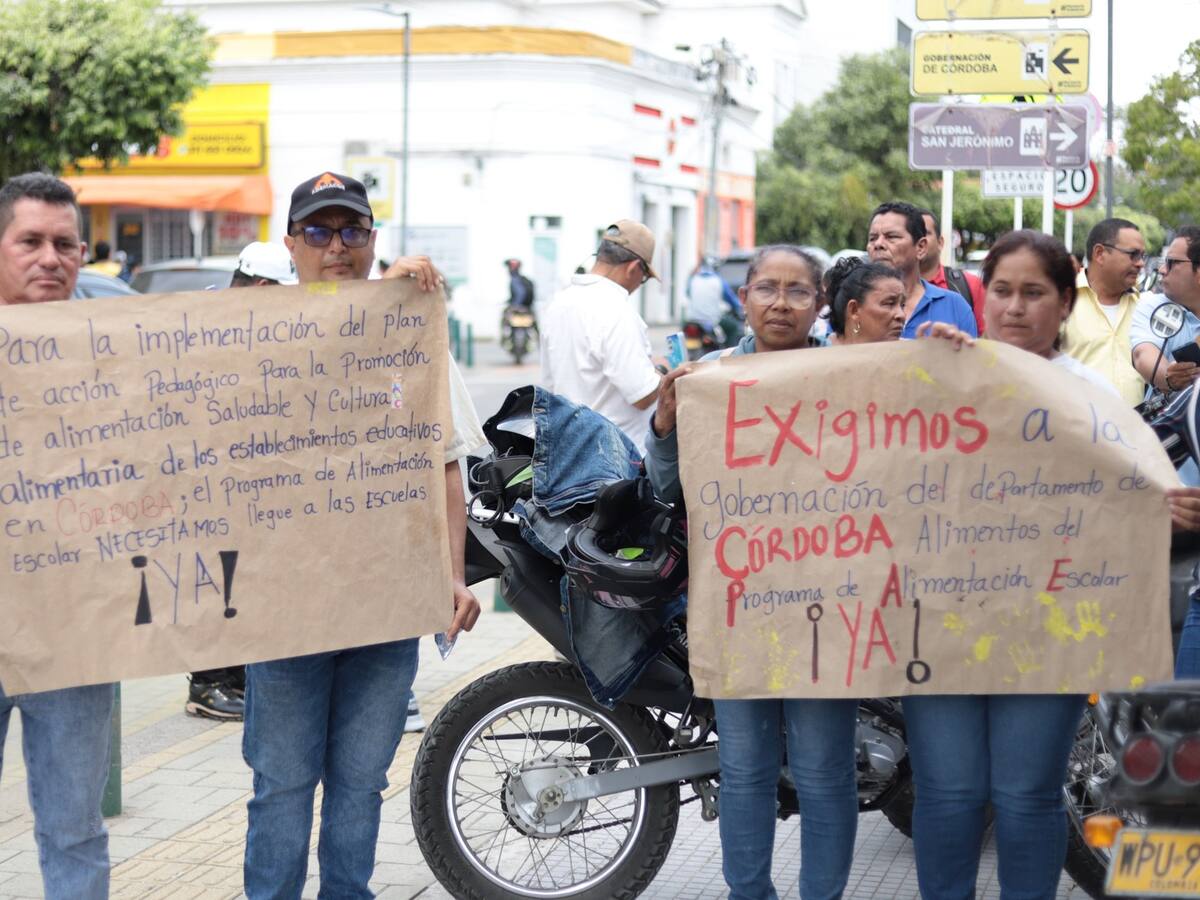 GOBERNACIÓN
DE CÓRDOBA
CATEDRAL
SAN JERÓNIMO
ESPACIO
SEGURO
20
Para la implementación del plan
de acción Pedagógico Para la Promoción
de alimentación Saludable Y Cultura
alimentaria de los establecimientos educativos
en CÓRDOBA; el Programa de Alimentación
Escolar NECESITAMOS llegue a las Escuelas
¡YA!
Exigimos a la
gobernación del departamento de
CÓRDOBA Alimentos del
Programa de Alimentación Escolar
¡YA!
WPU-9
COLOMBIA